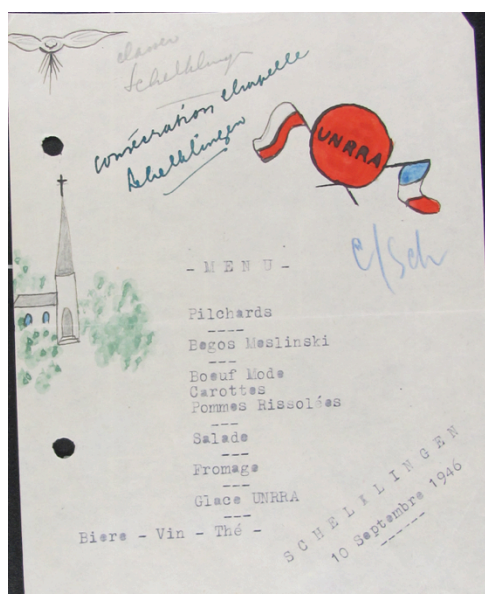 classer
Schelklingen
consécration chapelle
Schelklingen
UNRRA
c/Sch
- M E N U -
Pilchards
----
Begos Meslinski
---
Boeuf Mode
Carottes
Pommes Rissolées
---
Salade
---
Fromage
---
Glace UNRRA
---
Biere - Vin - Thé -
S C H E L K L I N G E N
10 Septembre 1946
------